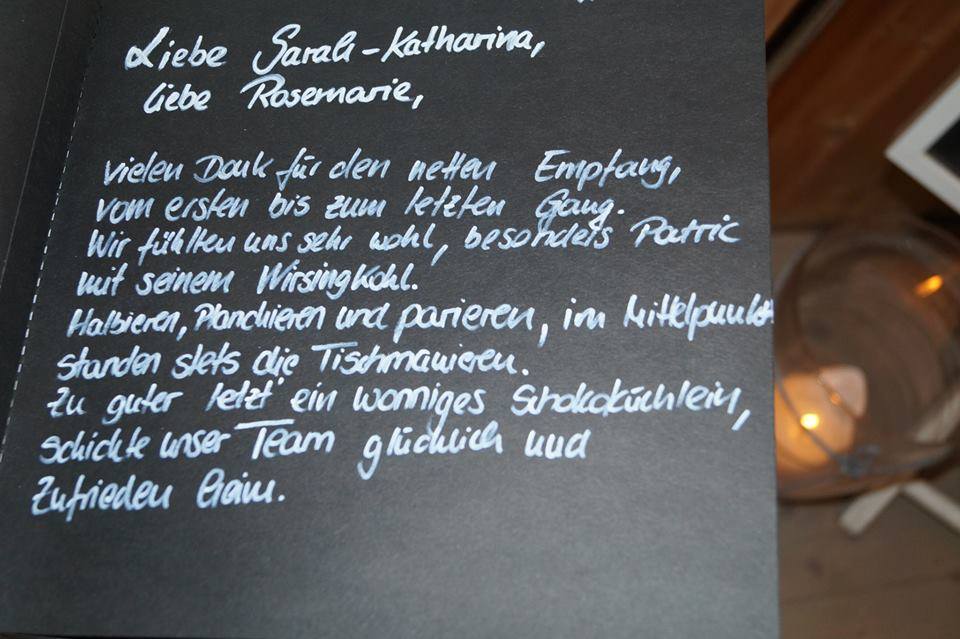 Liebe Sarah-Katharina,
liebe Rosemarie,
vielen Dank für den netten Empfang,
vom ersten bis zum letzten Gang.
Wir fühlten uns sehr wohl, besonders Patric
mit seinem Wirsingkohl.
Halbieren, Planchieren und parieren, im Mittelpunkt
standen stets die Tischmanieren.
Zu guter letzt ein wonniges Schokoküchlein,
schickte unser Team glücklich und
Zufrieden Heim.